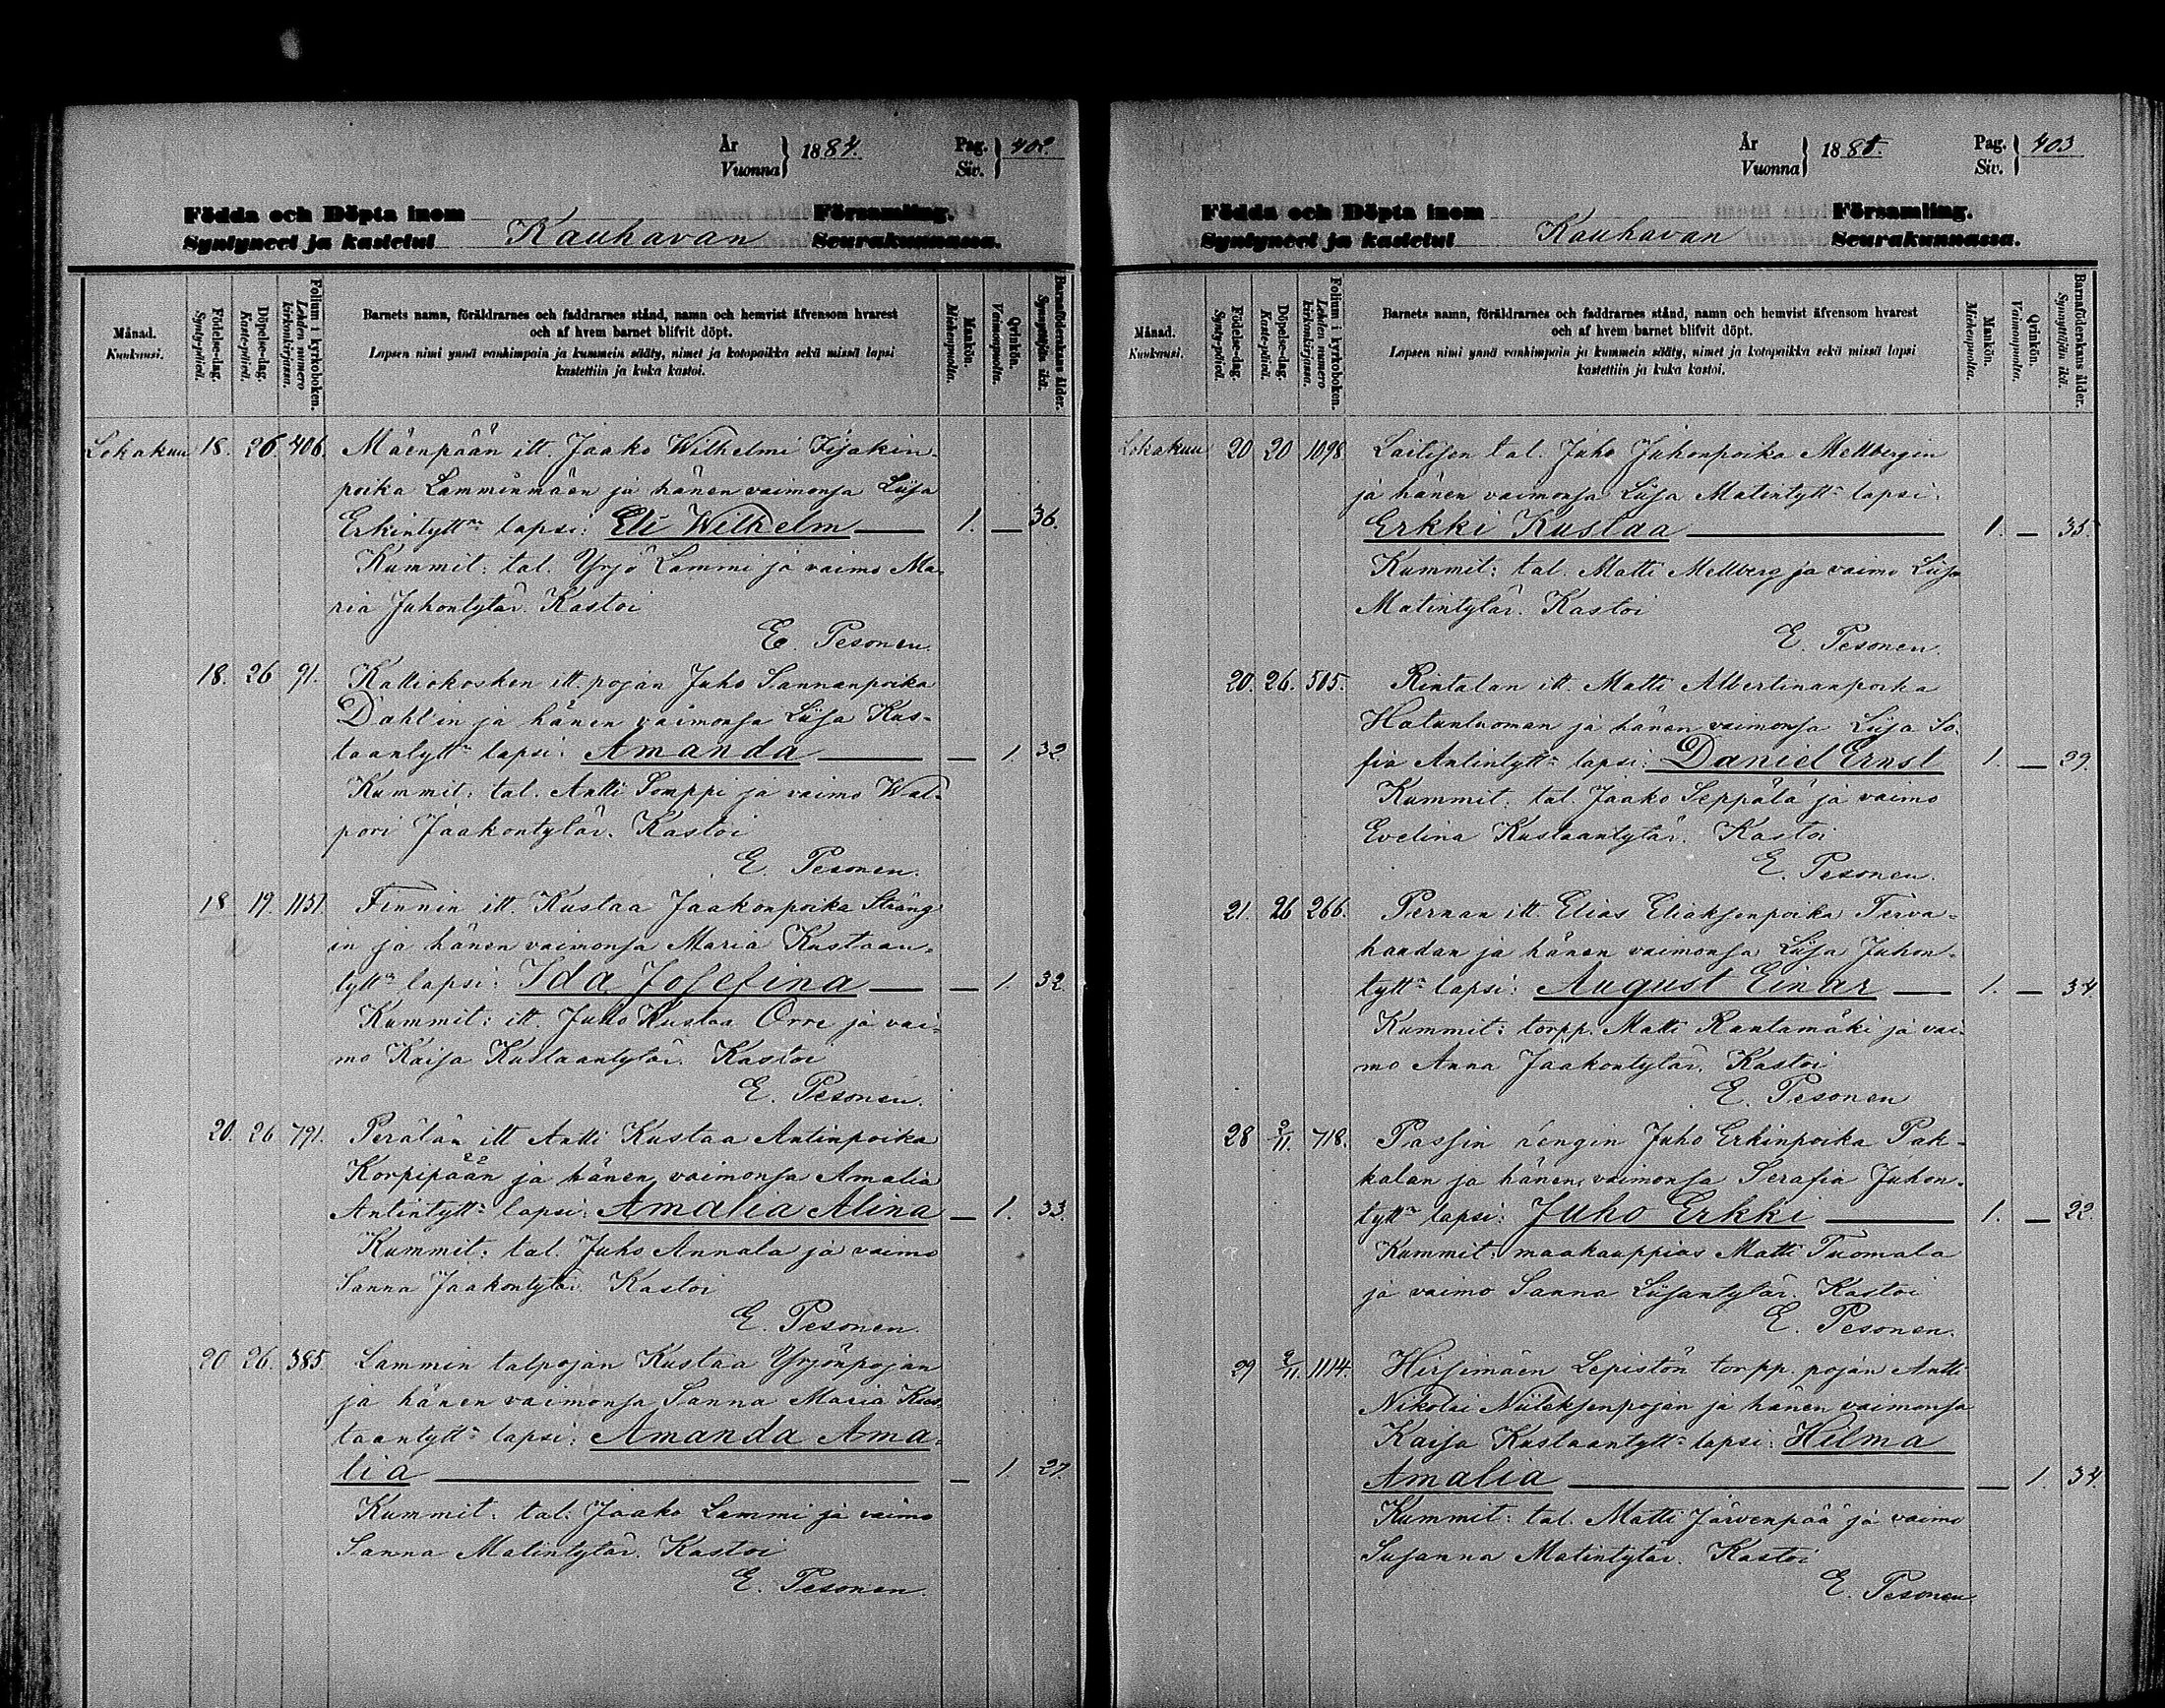 År
Vuonna } 1884. Pag.
Siv. } 402.
Födda och Döpta inom Församling.
Syntyneet ja kastetut Kauhavan Seurakunnassa.
Månad.
Kuukausi.
Födelse-dag.
Synty-päivä.
Döpelse-dag.
Kaste-päivä.
Folium i kyrkoboken.
Lehden numero kirkonkirjassa.
Barnets namn, föräldrarnes och faddrarnes stånd, namn och hemvist äfvensom hvarest
och af hvem barnet blifvit döpt.
Lapsen nimi ynnä vanhimpain ja kummein sääty, nimet ja kotopaikka sekä missä lapsi
kastettiin ja kuka kastoi.
Mankön.
Miehenpuolta.
Qvinkön.
Vaimonpuolta.
Barnaföderskans ålder.
Synnyttäjän ikä.
Lokakuu 18. 26 406. Mäenpään itt. Jaako Wilhelmi Iisakin-
poika Lamminmäen ja hänen vaimonsa Liisa
Erkintytt:n lapsi: Eli Wilhelm — 1. — 36.
Kummit: tal. Yrjö Lammi ja vaimo Ma-
ria Juhontytär. Kastoi
E. Pesonen.
18. 26 91. Kalliokosken itt. pojan Juho Sannanpoika
Dahl'in ja hänen vaimonsa Liisa Kus-
taantytt:n lapsi: Amanda — — 1. 32.
Kummit: tal. Antti Somppi ja vaimo Wal-
pori Jaakontytär. Kastoi
E. Pesonen.
18 19. 1151. Finnin itt. Kustaa Jaakonpoika Sträng
in ja hänen vaimonsa Maria Kustaan-
tytt:n lapsi: Ida Josefina — — 1. 32.
Kummit: itt. Juho Kustaa Orre ja vai-
mo Kaisa Kustaantytär. Kastoi
E. Pesonen.
20. 26 791. Perälän itt Antti Kustaa Antinpoika
Korpipään ja hänen vaimonsa Amalia
Antintytt:n lapsi: Amalia Alina — 1. 33.
Kummit: tal. Juho Annala ja vaimo
Sanna Jaakontytär. Kastoi
E. Pesonen.
20 26. 385. Lammin talpojan Kustaa Yrjönpojan
ja hänen vaimonsa Sanna Maria Kus-
taantytt:n lapsi: Amanda Ama-
lia — — 1. 27.
Kummit: tal. Jaako Lammi ja vaimo
Sanna Matintytär. Kastoi
E. Pesonen.
År
Vuonna } 188 Pag.
Siv. } 403
Födda och Döpta inom Församling.
Syntyneet ja kastetut Kauhavan Seurakunnassa.
Månad.
Kuukausi.
Födelse-dag.
Synty-päivä.
Döpelse-dag.
Kaste-päivä.
Folium i kyrkoboken.
Lehden numero kirkonkirjassa.
Barnets namn, föräldrarnes och faddrarnes stånd, namn och hemvist äfvensom hvarest
och af hvem barnet blifvit döpt.
Lapsen nimi ynnä vanhimpain ja kummein sääty, nimet ja kotopaikka sekä missä lapsi
kastettiin ja kuka kastoi.
Mankön.
Miehenpuolta.
Qvinkön.
Vaimonpuolta.
Barnaföderskans ålder.
Synnyttäjän ikä.
Lokakuu 20 20 1098 Laitisen tal. Juho Juhonpoika Mellbergin
ja hänen vaimonsa Liisa Matintytt:n lapsi:
Erkki Kustaa — 1. — 35.
Kummit: tal. Matti Mellberg ja vaimo Liisa
Matintytär. Kastoi
E. Pesonen.
20. 26. 505. Rintalan itt. Matti Albertinanpoika
Hatunluoman ja hänen vaimonsa Liisa So-
fia Antintytt:n lapsi: Daniel Ernst 1. — 29.
Kummit: tal. Jaako Seppälä ja vaimo
Evelina Kustaantytär. Kastoi
E. Pesonen.
21. 26 266. Pernan itt. Elias Eliaksenpoika Terva-
haudan ja hänen vaimonsa Liisa Juhon-
tytt:n lapsi: August Einar — 1. — 34.
Kummit: torpp. Matti Rantamäki ja vai-
mo Anna Jaakontytär. Kastoi
E. Pesonen
28 2/11. 718. Passin rengin Juho Erkinpoika Pak-
kalan ja hänen vaimonsa Serafia Juhon-
tytt:n lapsi: Juho Erkki — 1. — 22.
Kummit: maakauppias Matti Tuomala
ja vaimo Sanna Liisantytär. Kastoi
E. Pesonen.
29 2/11. 1114. Hirsimäen Lepistön torpp. pojan Antti
Nikolai Niileksenpojan ja hänen vaimonsa
Kaisa Kustaantytt:n lapsi: Hilma
Amalia — — 1. 34.
Kummit: tal. Matti Järvenpää ja vaimo
Susanna Matintytär. Kastoi
E. Pesonen